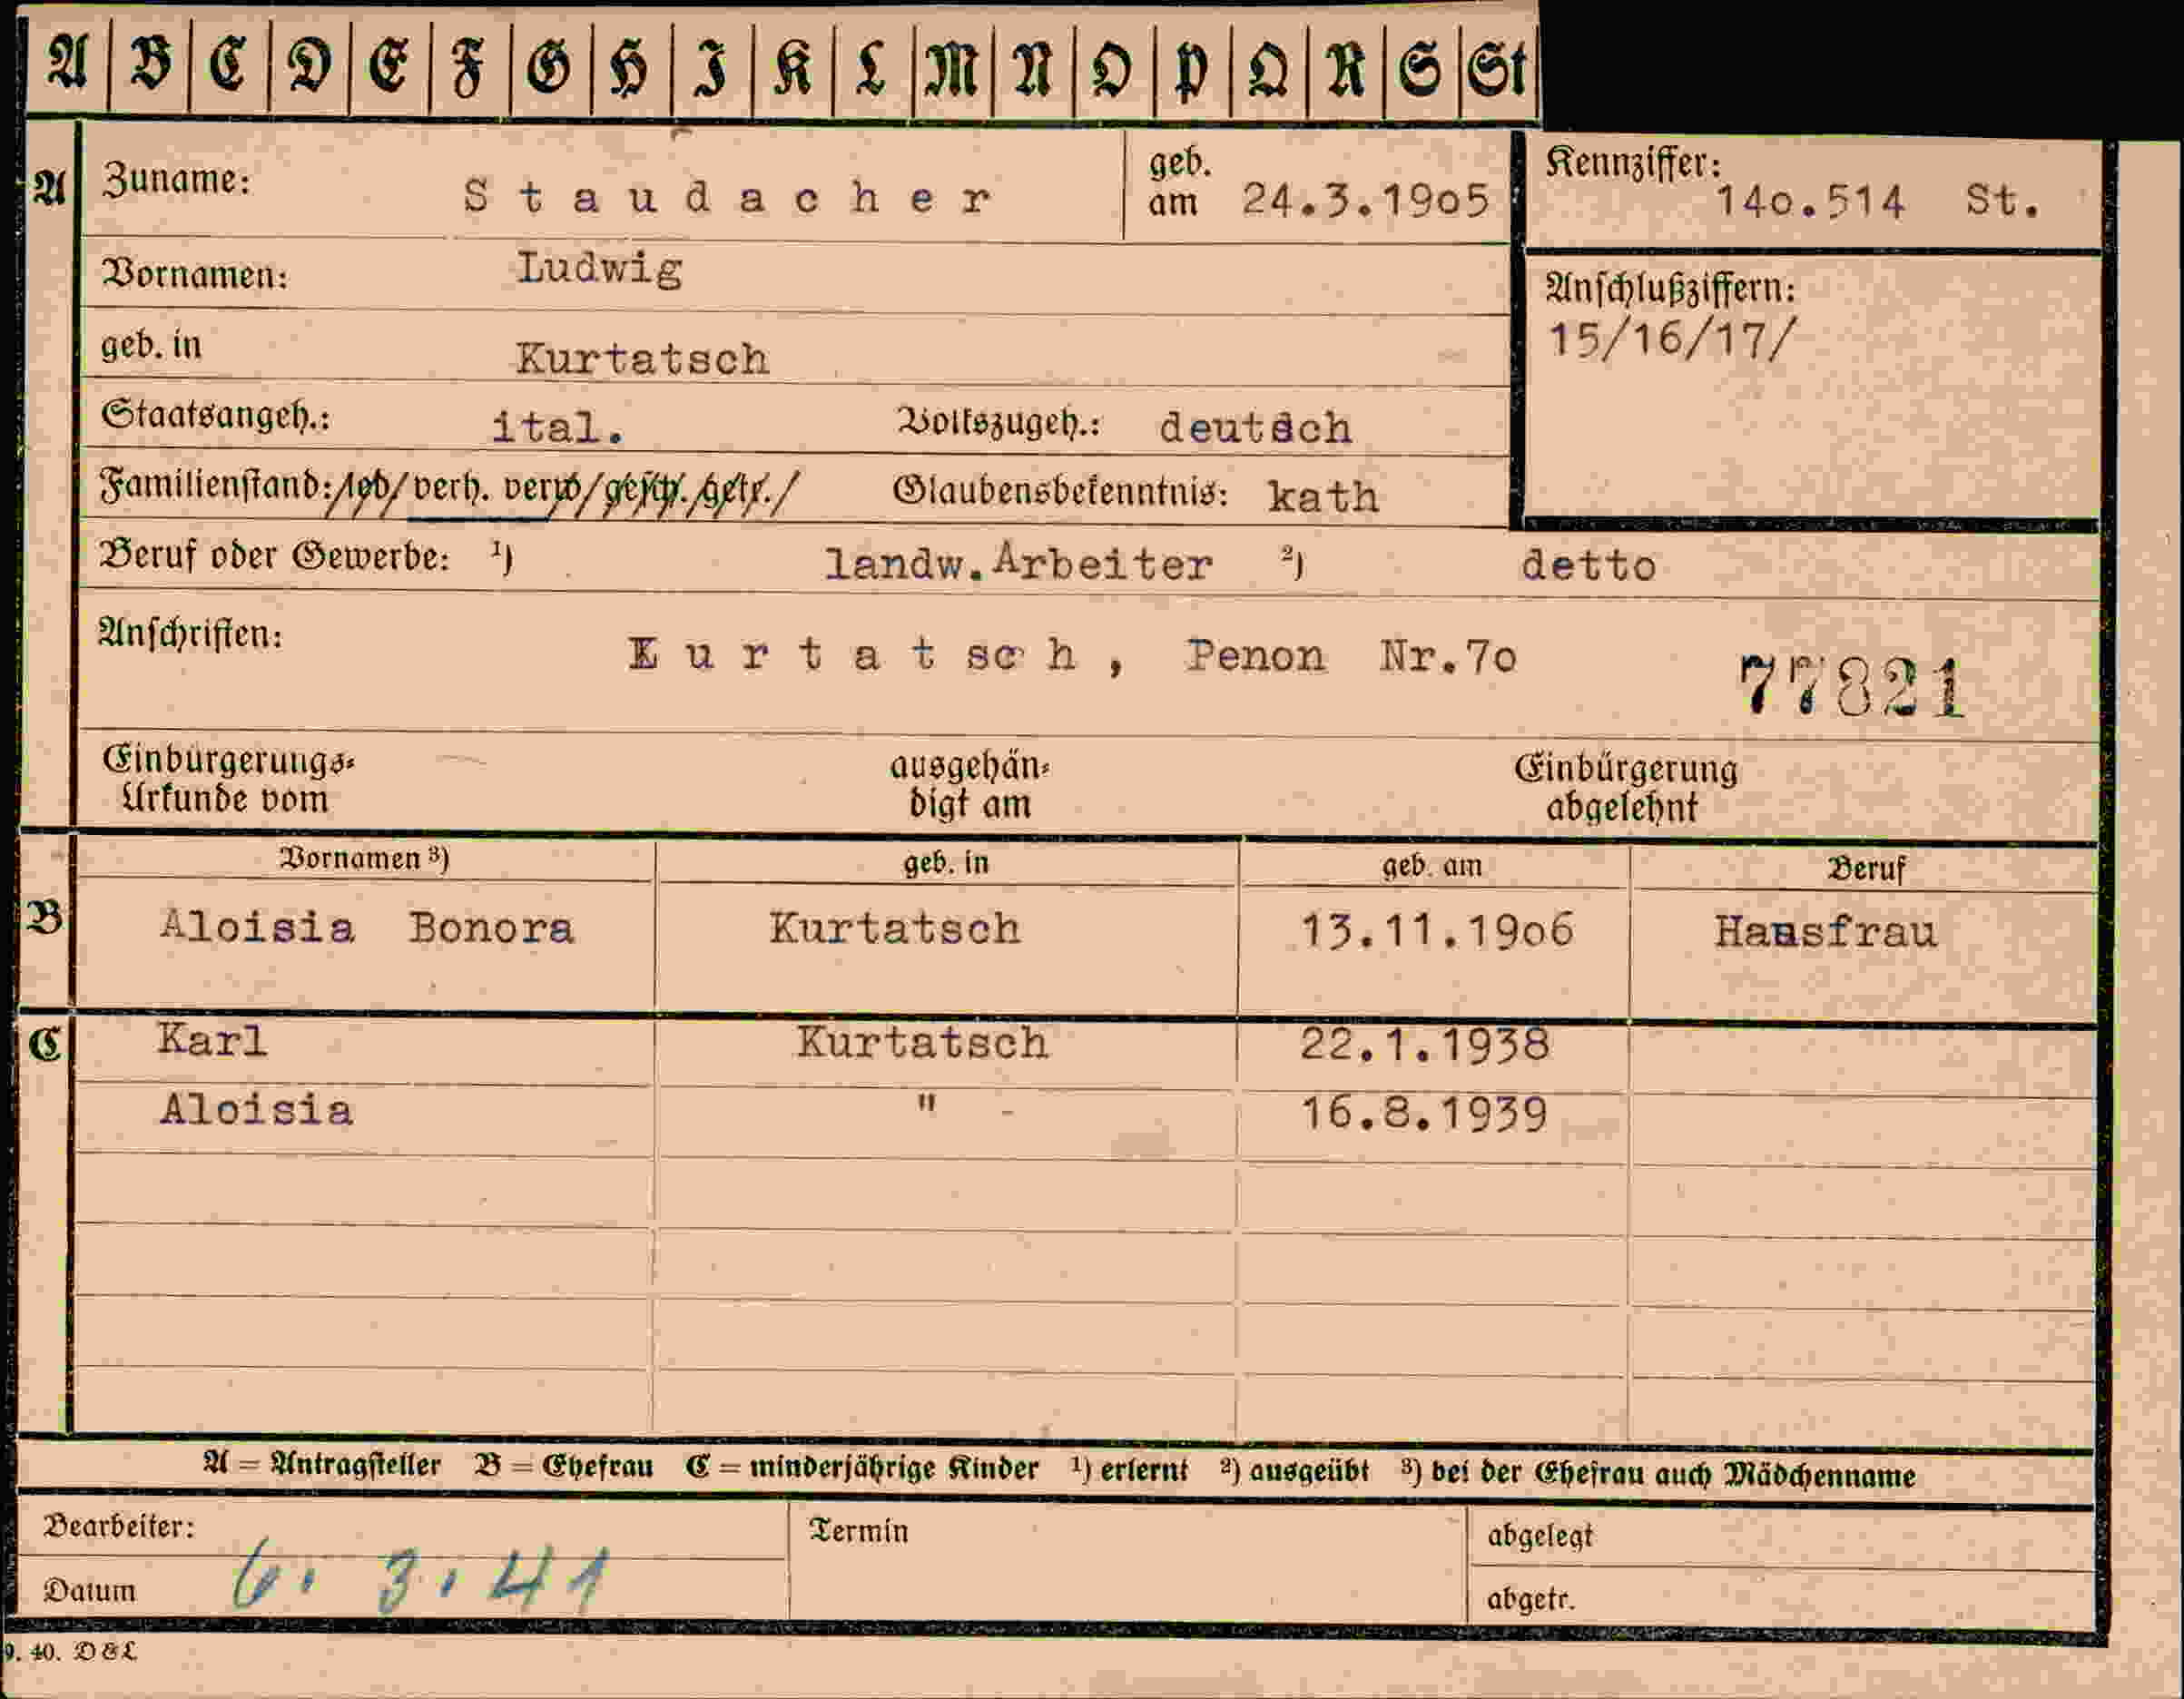 A B C D E F G H I K L M N O P Q R S St
A Zuname: Staudacher geb. am 24.3.19o5 Kennziffer: 14o.514 St.
Vornamen: Ludwig
Anschlußziffern:
15/16/17/
geb. in Kurtatsch
Staatsangeh.: ital. Volkszugeh.: deutsch
Familienstand: led verh. verw gesch. getr. Glaubensbekenntnis: kath
Beruf oder Gewerbe: ¹) landw.Arbeiter ²) detto
Anschriften: Kurtatsch, Penon Nr.7o 77821
Einbürgerungs-
Urkunde vom
ausgehän-
digt am
Einbürgerung
abgelehnt
Vornamen ³) geb. in geb. am Beruf
B Aloisia Bonora Kurtatsch 13.11.19o6 Hausfrau
C Karl Kurtatsch 22.1.1938
Aloisia " - 16.8.1939
A = Antragsteller B = Ehefrau C = minderjährige Kinder ¹) erlernt ²) ausgeübt ³) bei der Ehefrau auch Mädchenname
Bearbeiter: Termin abgelegt
Datum 6. 3. 41 abgetr.
9. 40. D&L